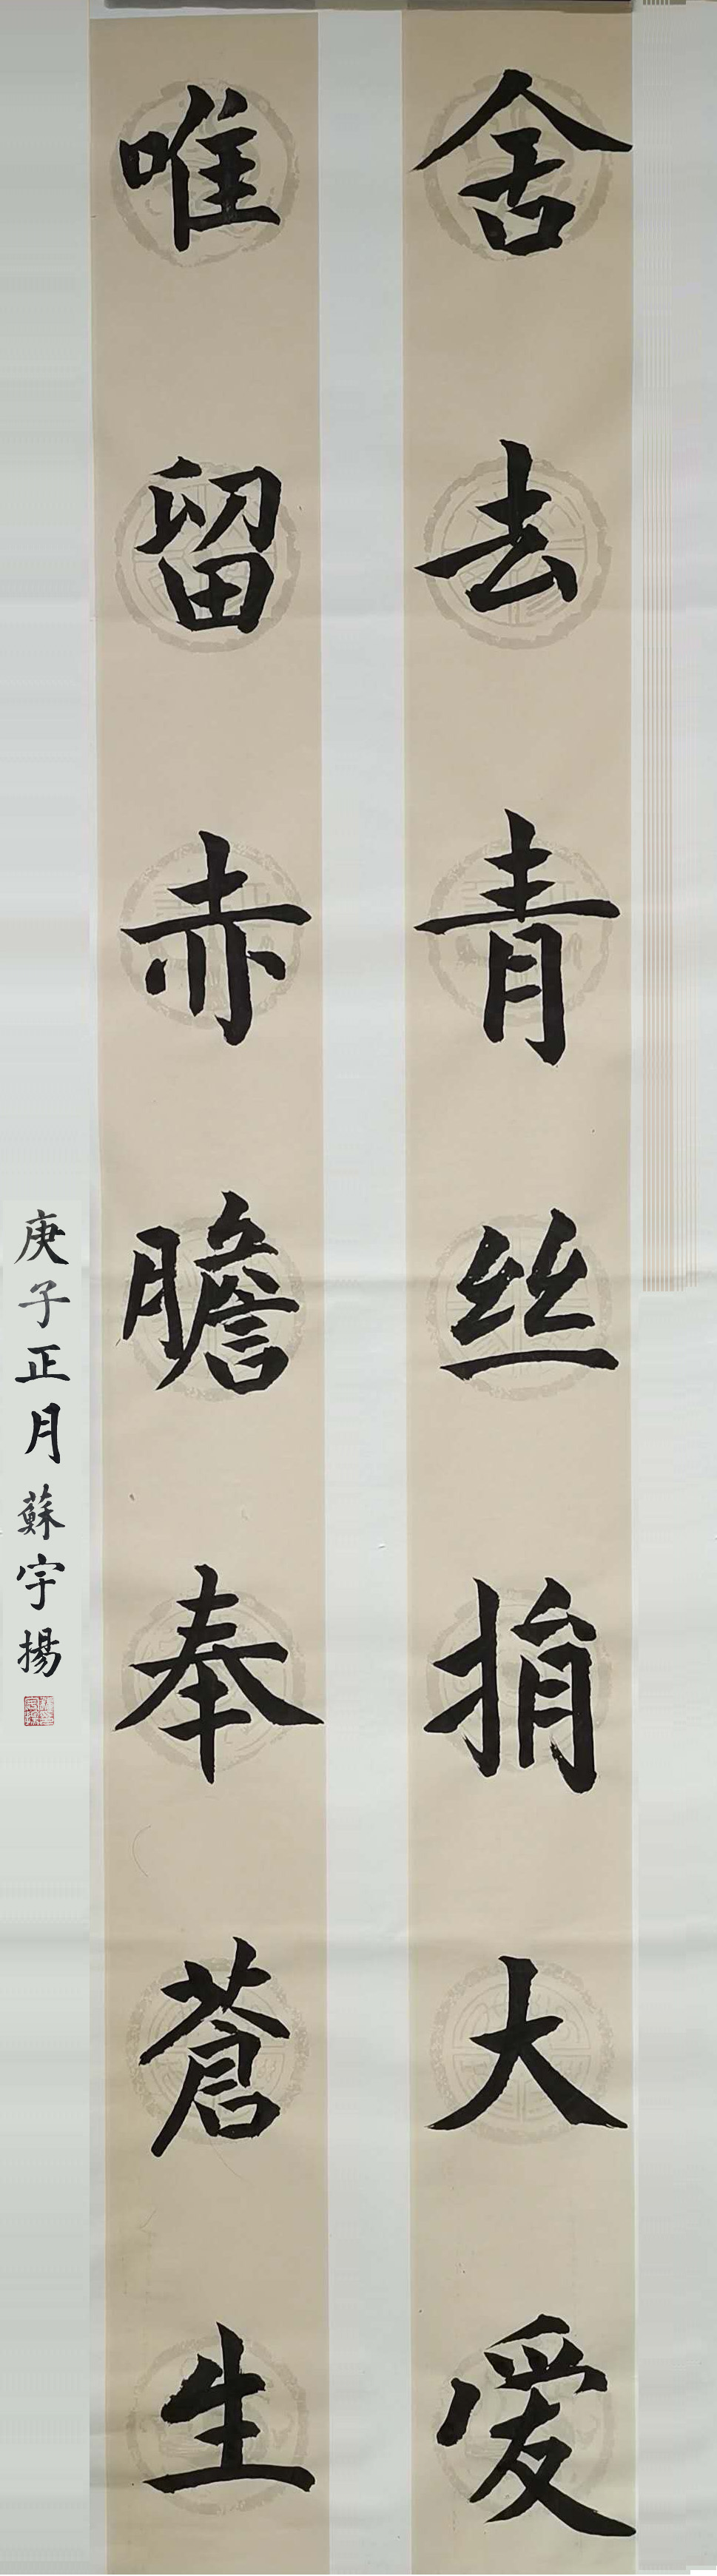 舍去青丝捐大爱
唯留赤膽奉蒼生
庚子正月蘇宇揚